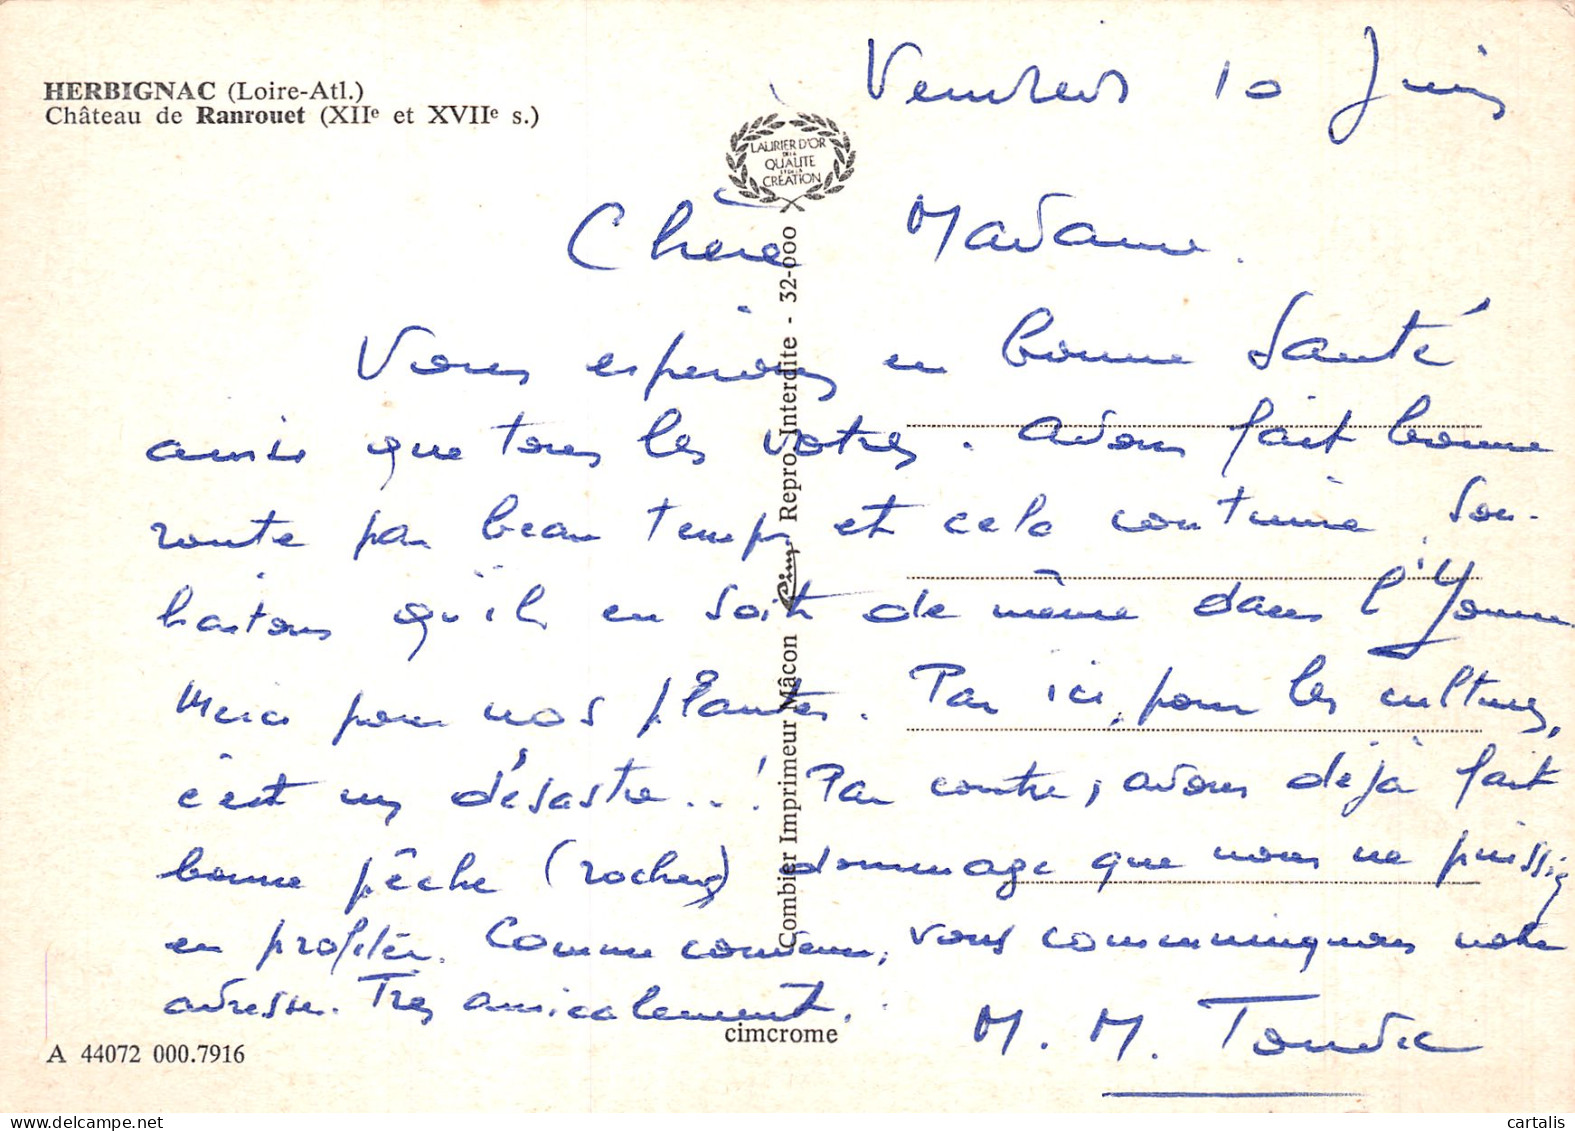 HERBIGNAC (Loire-Atl.)
Château de Ranrouet (XIIe et XVIIe s.)
LAURIER D'OR
DE LA
QUALITE
ET DE LA
CREATION
Vendredi 10 Juin
Chère Madame.
Vous espérons en bonne santé
ainsi que tous les votres. Avons fait bonne
route par beau temps et cela continue. Sou-
haitons qu'il en soit de même dans l'Yonne
Merci pour nos plantes. Par ici, pour les cultures,
c'est un désastre..! Par contre, avons déjà fait
bonne pêche (rochers) dommage que vous ne puissiez
en profiter. Comme convenu, vous communiquons notre
adresse. Très amicalement.
M. M.
Combier Imprimeur Mâcon Cim Repro. Interdite - 32-000
cimcrome
A 44072 000.7916
delcampe.net
cartalis